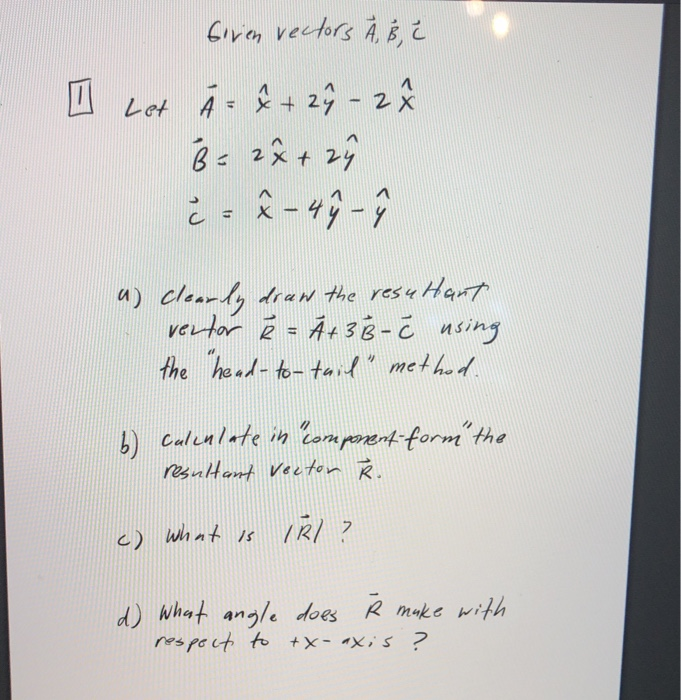 Given vectors A⃗, B⃗, C⃗
1 Let A⃗ = x̂ + 2ŷ - 2x̂
B⃗ = 2x̂ + 2ŷ
C⃗ = x̂ - 4ŷ - ŷ
a) clearly draw the resultant
vector R⃗ = A⃗ + 3B⃗ - C⃗ using
the "head-to-tail" method.
b) calculate in "component-form" the
resultant vector R⃗.
c) What is |R⃗| ?
d) What angle does R⃗ make with
respect to +x-axis ?